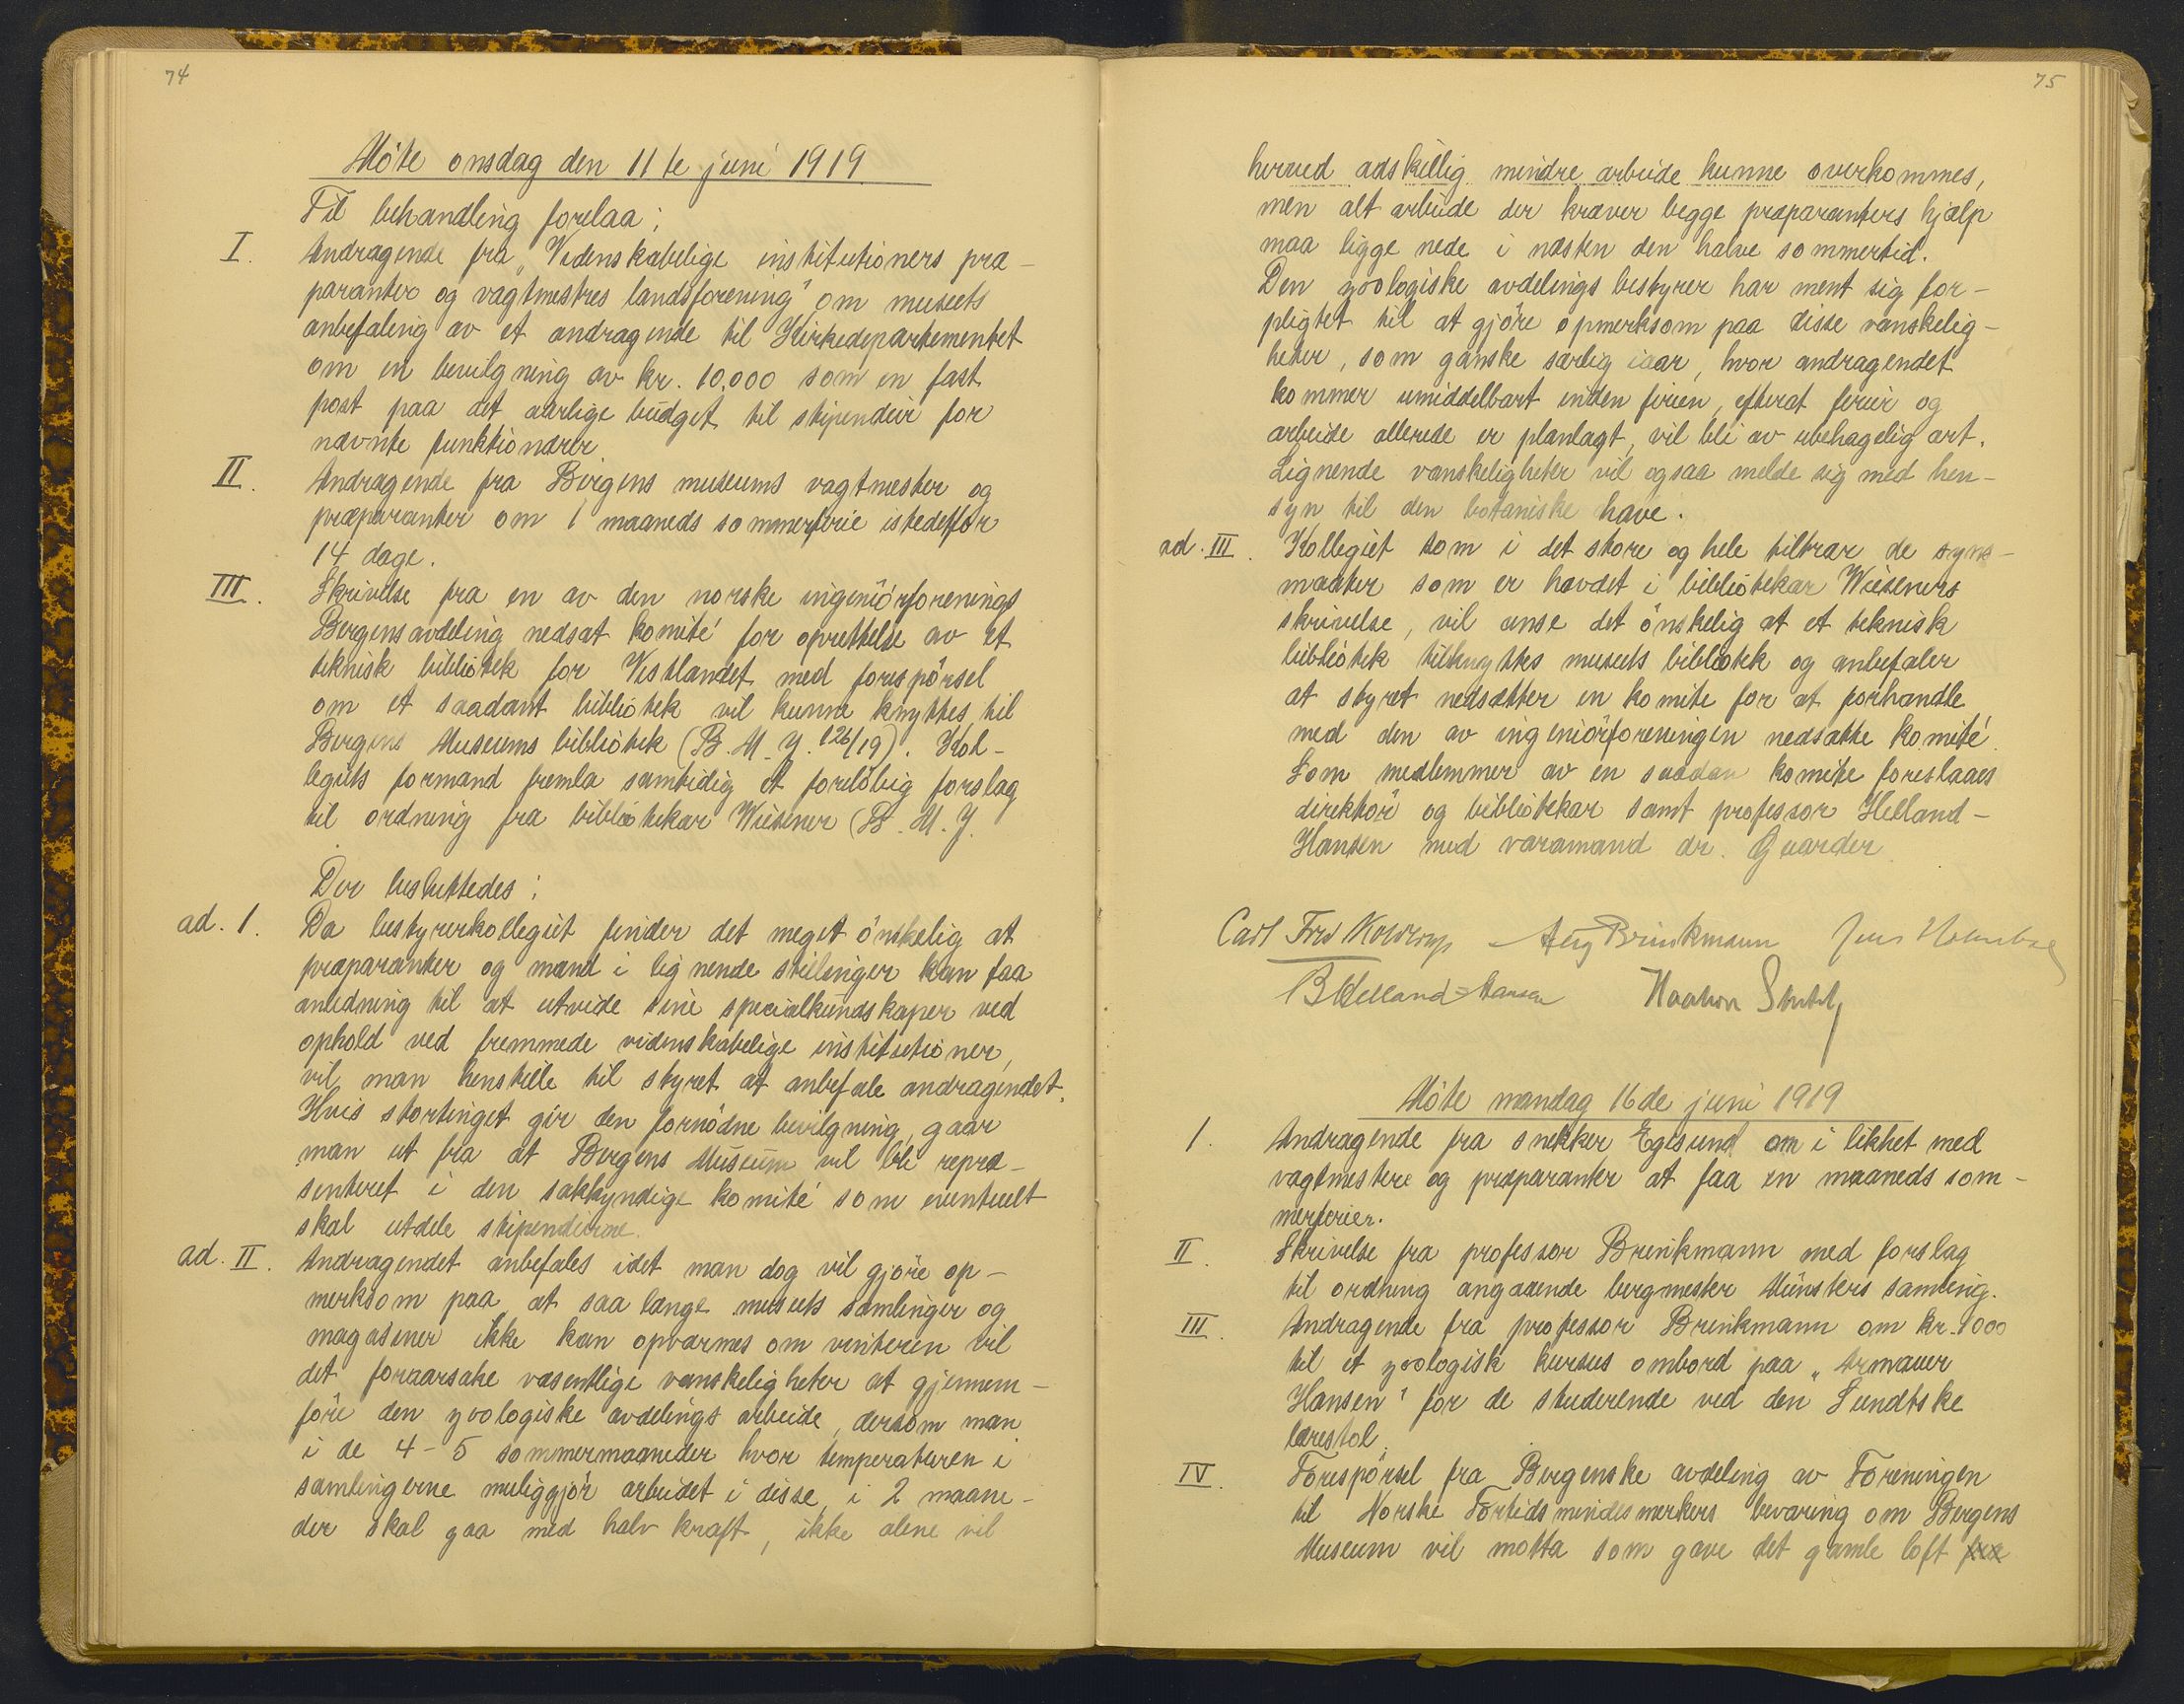 74
Möte onsdag den 11te juni 1919
Til behandling forelaa:
I. Andragende fra „Videnskabelige institutioners præ-
paranter og vagtmestres landsforening" om museets
anbefaling av et andragende til Kirkedepartementet
om en bevilgning av kr. 10.000 som en fast
post paa det aarlige budget til stipendier for
nævnte funktionærer
II. Andragende fra Bergens museums vagtmester og
præparanter om 1 maaneds sommerferie istedetfor
14 dage.
III. Skrivelse fra en av den norske ingeniörforenings
Bergensavdeling nedsat komité for oprettelse av et
teknisk bibliotek for Vestlandet med forespörsel
om et saadant bibliotek vil kunne knyttes til
Bergens Museums bibliotek (B. M. J. 126/19). Kol-
legiets formand fremla samtidig et forelöbig forslag
til ordning fra bibliotekar Wiesener (B. M. J.
Der besluttedes:
ad. 1. Da bestyrerkollegiet finder det meget önskelig at
præparanter og mænd i lignende stillinger kan faa
anledning til at utvide sine specialkundskaper ved
ophold ved fremmede videnskabelige institutioner,
vil man henstille til styret at anbefale andragendet.
Hvis stortinget gir den fornödne bevilgning, gaar
man ut fra at Bergens Museum vil bli repræ-
senteret i den sakkyndige komité som eventuelt
skal utdele stipendierne.
ad. II. Andragendet anbefales idet man dog vil gjöre op-
merksom paa at saa længe museets samlinger og
magasiner ikke kan opvarmes om vinteren vil
det foraarsake væsentlige vanskeligheter at gjennem-
före den zoologiske avdelings arbeide, dersom man
i de 4-5 sommermaaneder hvor temperaturen i
samlingerne muliggjör arbeidet i disse, i 2 maane-
der skal gaa med halv kraft, ikke alene vil
75
herved adskillig mindre arbeide kunne overkommes,
men alt arbeide der kræver begge præparanters hjælp
maa ligge nede i næsten den halve sommertid.
Den zoologiske avdelings bestyrer har ment sig for-
pligtet til at gjöre opmerksom paa disse vanskelig-
heter, som ganske særlig iaar, hvor andragendet
kommer umiddelbart inden ferien, efterat ferier og
arbeide allerede er planlagt, vil bli av ubehagelig art.
Lignende vanskeligheter vil ogsaa melde sig med hen-
syn til den botaniske have.
ad. III. Kollegiet som i det store og hele tiltrær de syns-
maater som er hævdet i bibliotekar Wieseners
skrivelse, vil anse det önskelig at et teknisk
bibliotek tilknyttes museets bibliotek og anbefaler
at styret nedsætter en komite for at forhandle
med den av ingeniörforeningen nedsatte komité
Som medlemmer av en saadan komite foreslaaes
direktör og bibliotekar samt professor Helland-
Hansen med varamand dr. Gaarder
Carl Fred Kolderup Aug Brinkmann Jens Holmboe
B Helland-Hansen Haakon Shetelig
Möte mandag 16de juni 1919
1. Andragende fra snekker Egesund om i likhet med
vagtmestere og præparanter at faa en maaneds som-
merferier.
II. Skrivelse fra professor Brinkmann med forslag
til ordning angaaende bergmester Münsters samling.
III. Andragende fra professor Brinkmann om kr. 1000
til et zoologisk kursus ombord paa „Armauer
Hansen" for de studerende ved den Sundtske
lærestol.
IV. Forespörsel fra Bergenske avdeling av Foreningen
til Norske Fortidsmindesmerkers bevaring om Bergens
Museum vil motta som gave det gamle loft